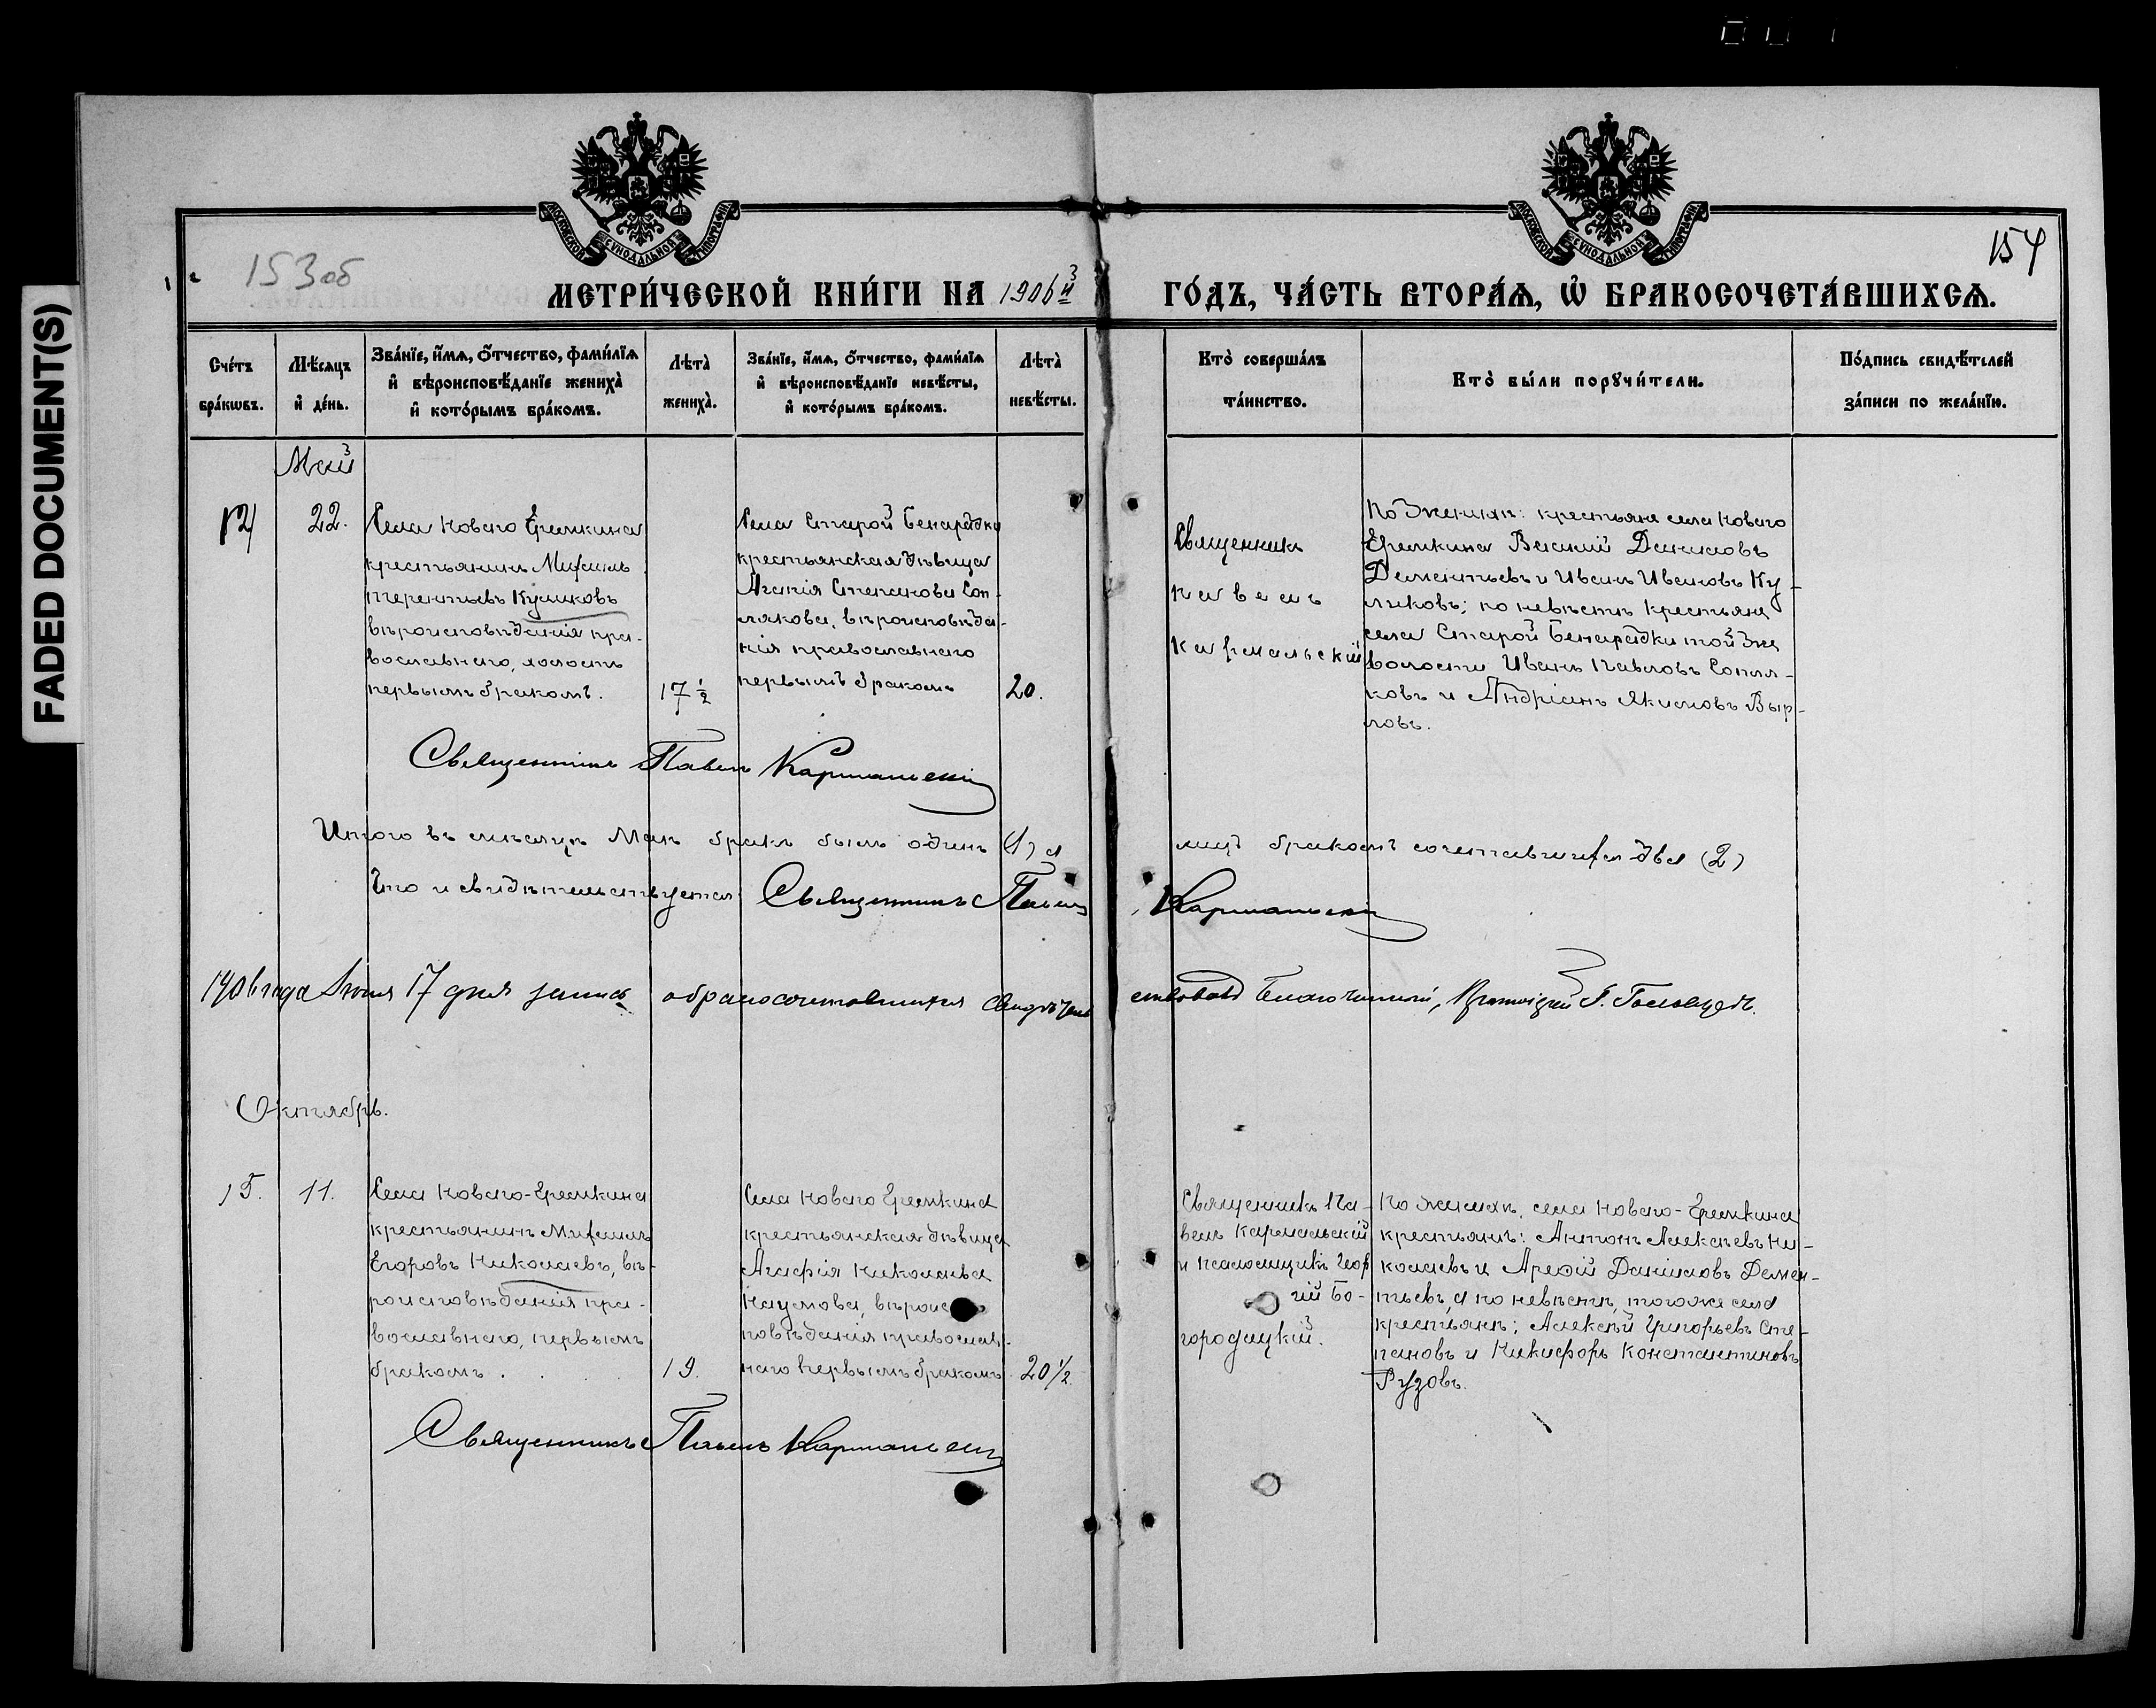 FADED DOCUMENT(S)
МОСКОВСКОЙ СѴНОДАЛЬНОЙ ТИПОГРАФІИ
МОСКОВСКОЙ СѴНОДАЛЬНОЙ ТИПОГРАФІИ
153об
154
МЕТРИ́ЧЕСКОЙ КНИ́ГИ НА 1906й ГО́ДЪ, ЧА́СТЬ ВТОРА́Ѧ, Ѡ҆ БРАКОСОЧЕТА́ВШИХСѦ.
Сче́тъ бра́кѡвъ.
Мѣ́сѧцъ и҆ де́нь.
Зва́нїе, и҆́мѧ, ѻ҆́тчество, фами́лїѧ
и҆ вѣроисповѣ́данїе жениха̀
и҆ кото́рымъ бра́комъ.
Лѣта̀ жениха̀.
Зва́нїе, и҆́мѧ, ѻ҆́тчество, фами́лїѧ
и҆ вѣроисповѣ́данїе невѣ́сты,
и҆ кото́рымъ бра́комъ.
Лѣта̀ невѣ́сты.
Кто̀ соверша́лъ
та́инство.
Кто̀ бы́ли порꙋчи́тели.
По́дпись свидѣ́телей
за́писи по жела́нїю.
Май
22.
Села Новаго Еремкина
крестьянинъ Михаилъ
Терентьевъ Куликовъ
вѣроисповѣданія пра-
вославнаго, холостъ
первымъ бракомъ.
17 ½
Села Старой Бинарадки
крестьянская дѣвица
Агапія Степанова Соп-
лякова, вѣроисповѣда-
нія православнаго
первымъ бракомъ
20.
Священникъ
Павелъ
Кармальскій
По женихѣ: крестьяне села Новаго
Еремкина Василій Даниловъ
Дементьевъ и Иванъ Ивановъ Ку-
ликовъ; по невѣстѣ крестьяне
села Старой Бинарадки той же
волости Иванъ Павловъ Сопля-
ковъ и Андріанъ Якимовъ Выр-
ловъ.
Священникъ Павелъ Кармальскій
Итого въ мѣсяцѣ Маѣ бракъ былъ одинъ (1) а лицъ бракомъ сочетавшихся два (2)
Что и свидѣтельствуетъ: Священникъ Павелъ Кармальскій
1906 года Іюня 17 дня запись о бракосочетавшихся свидѣтельствовалъ Благочинный,
Октябрь.
15.
11.
Села Новаго-Еремкина
крестьянинъ Михаилъ
Егоровъ Николаевъ, вѣ-
роисповѣданія пра-
вославнаго, первымъ
бракомъ.
19.
Села Новаго Еремкина
крестьянская дѣвица
Агафія Николаева
Наумова, вѣроис-
повѣданія православ-
наго первымъ бракомъ
20 ½
Священникъ Па-
велъ Кармальскій
и псаломщикъ Геор
гій Бо-
городицкій.
По женихѣ, села Новаго-Еремкина
крестьяне: Антонъ Алексѣевъ Ни-
колаевъ и Арефій Даниловъ Демен-
тьевъ, а по невѣстѣ, того же села
крестьяне; Алексѣй Григорьевъ Сте-
пановъ и Никифоръ Константиновъ
Рузовъ.
Священникъ Павелъ Кармальскій